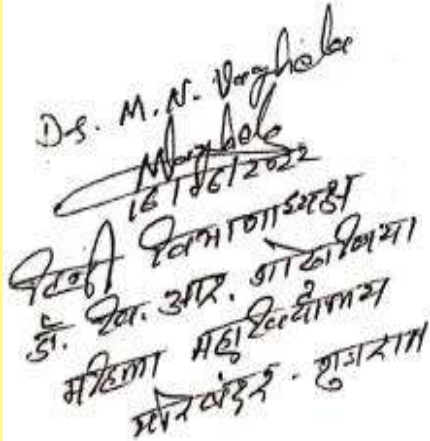 Dr. M. N. Vaghela
MVaghela
16/06/2022
हिन्दी विभागाध्यक्ष
डॉ. वि. आर. गोढाणिया
महिला महाविद्यालय
पोरबंदर - गुजरात